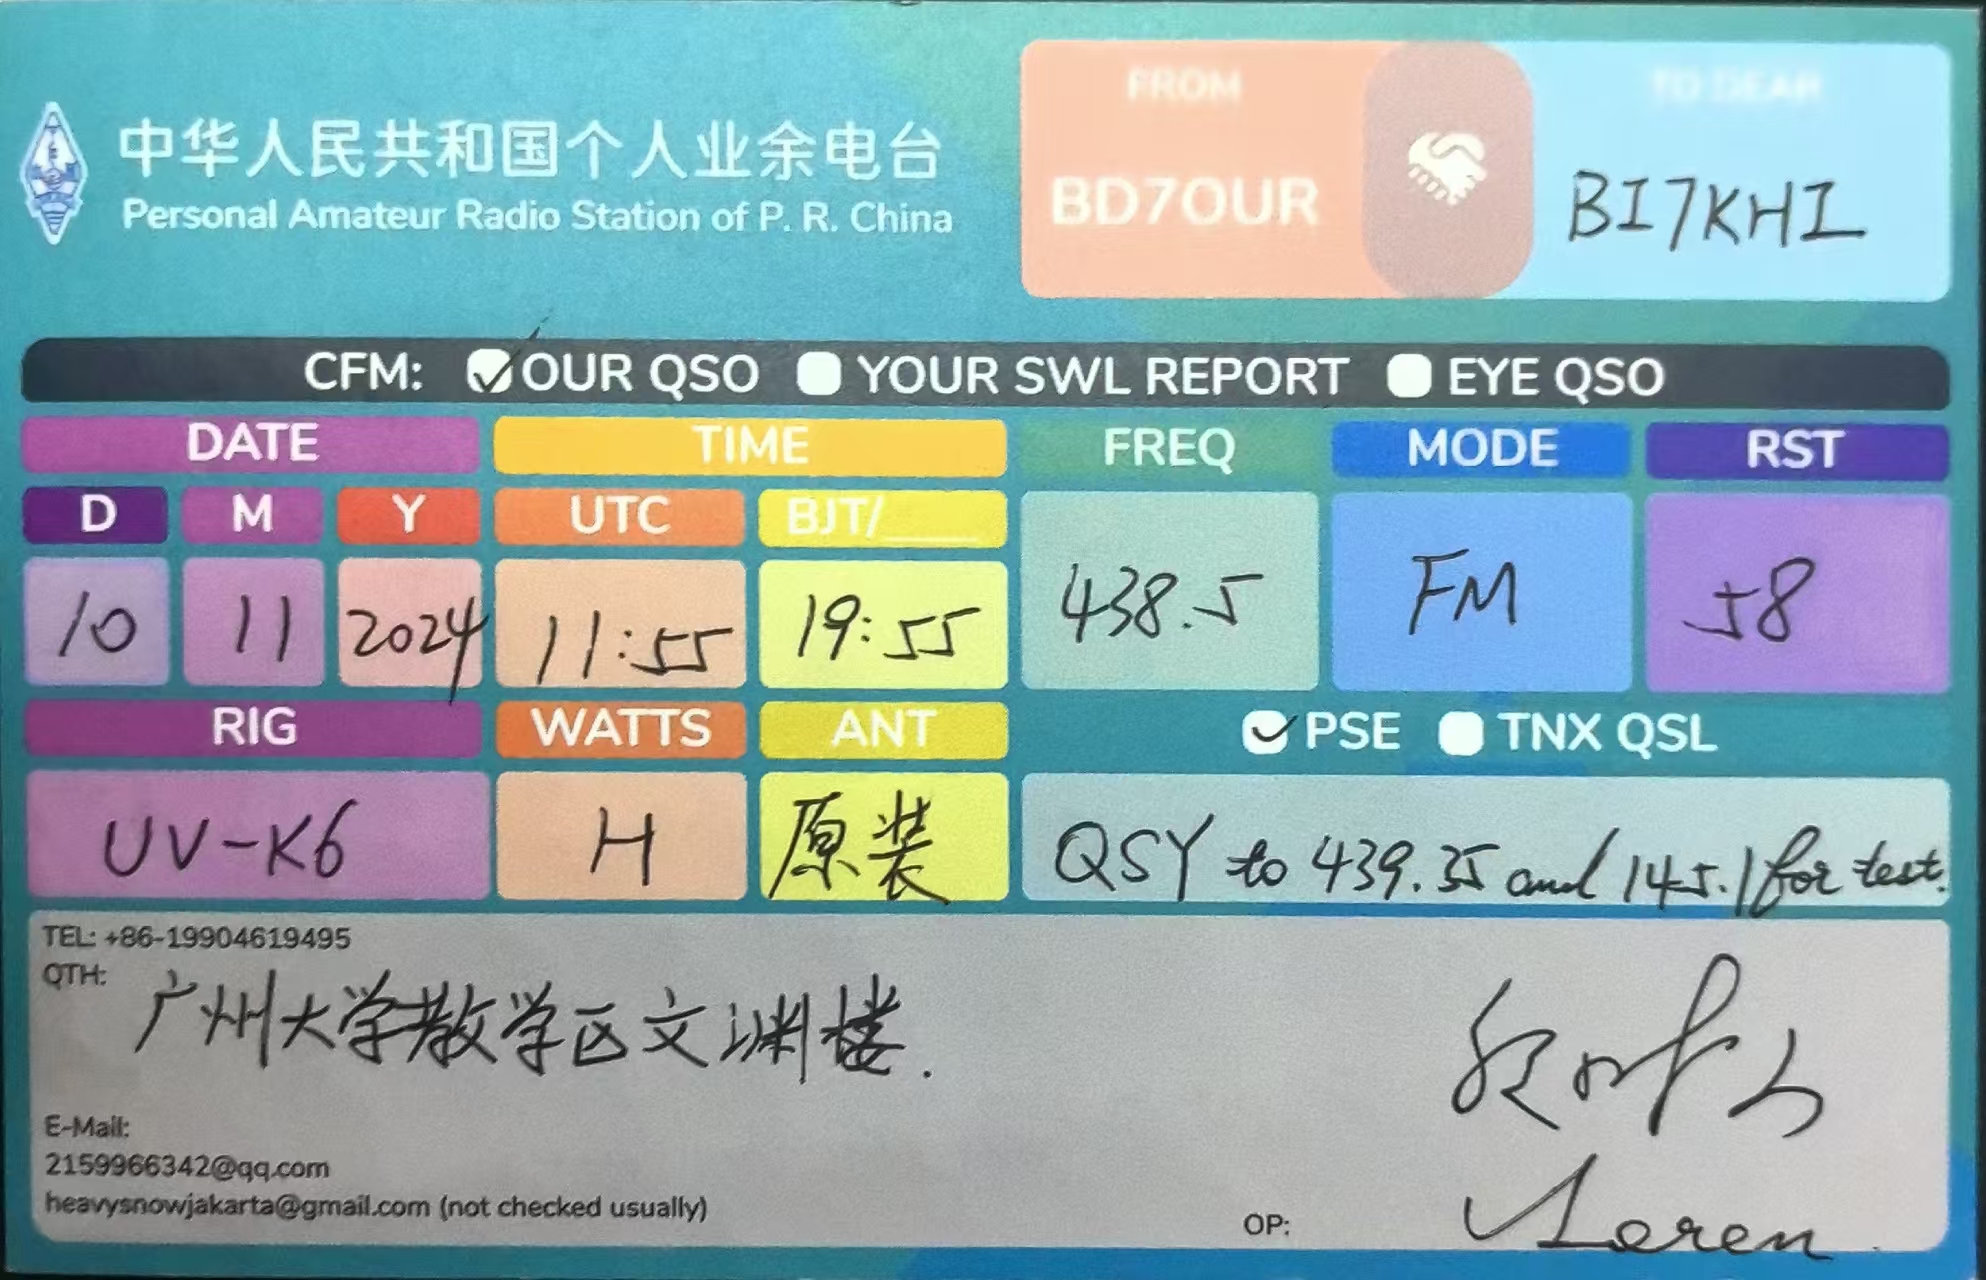 中华人民共和国个人业余电台
Personal Amateur Radio Station of P. R. China
FROM
BD7OUR
TO DEAR
BI7KHI
CFM: OUR QSO YOUR SWL REPORT EYE QSO
DATE TIME FREQ MODE RST
D M Y UTC BJT/____
10 11 2024 11:55 19:55 438.5 FM 58
RIG WATTS ANT PSE TNX QSL
UV-K6 H 原装 QSY to 439.35 and 145.1 for test.
TEL: +86-19904619495
QTH: 广州大学教学区文渊楼.
E-Mail:
2159966342@qq.com
heavysnowjakarta@gmail.com (not checked usually)
OP: Loren